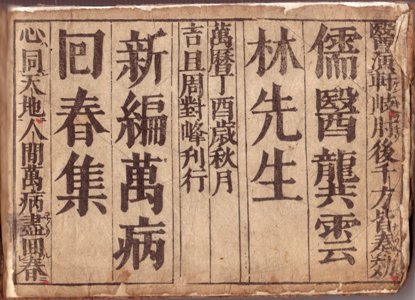 醫演軒岐肘後千方皆奏効
儒醫龔雲
林先生
萬曆丁酉歲秋月
吉旦周對峰刊行
新編萬病
囘春集
心同天地人間萬病盡回春